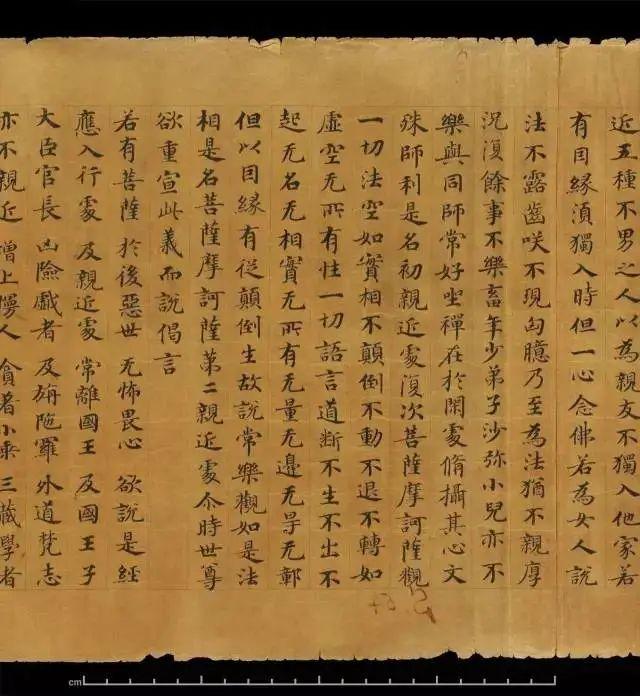 近五種不男之人以為親友不獨入他家若
有因緣須獨入時但一心念佛若為女人說
法不露齒咲不現匈臆乃至為法猶不親厚
況復餘事不樂畜年少弟子沙弥小兒亦不
樂與同師常好坐禪在於閑處脩攝其心文
殊師利是名初親近處復次菩薩摩訶薩觀
一切法空如實相不顛倒不動不退不轉如
虛空无所有性一切語言道斷不生不出不
起无名无相實无所有无量无邊无㝵无鄣
但以因緣有從顛倒生故說常樂觀如是法
相是名菩薩摩訶薩第二親近處尒時世尊
欲重宣此義而說偈言
若有菩薩 於後惡世 无怖畏心 欲說是經
應入行處 及親近處 常離國王 及國王子
大臣官長 凶險戲者 及旃陁羅 外道梵志
亦不親近 增上慢人 貪著小乘 三藏學者
cm